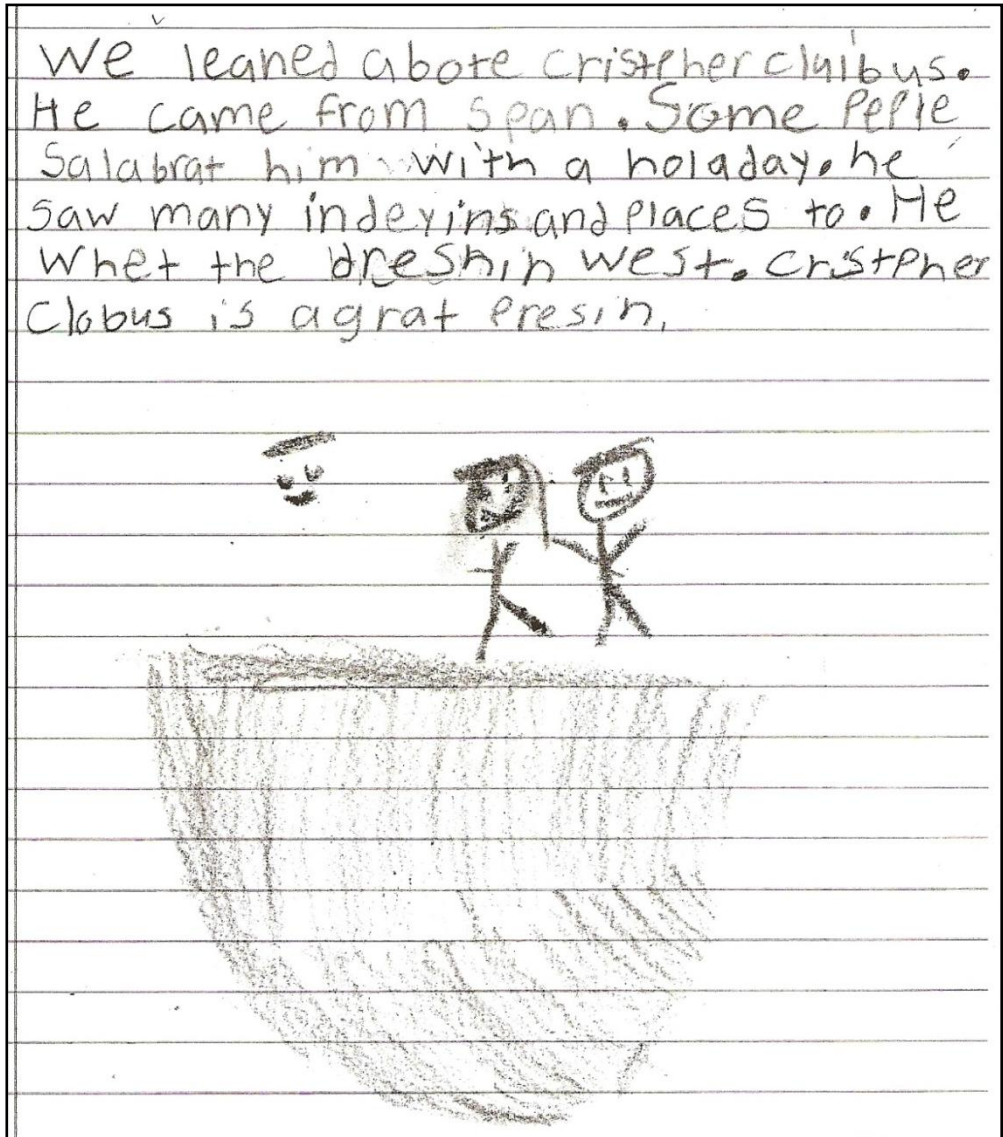 We leaned abote cristpher cluibus.
He came from Span. Some Peple
Salabrat him with a holaday. he
saw many indeyins and Places to. He
Whet the dreshin west. Cristpher
Clobus is a grat Presin.